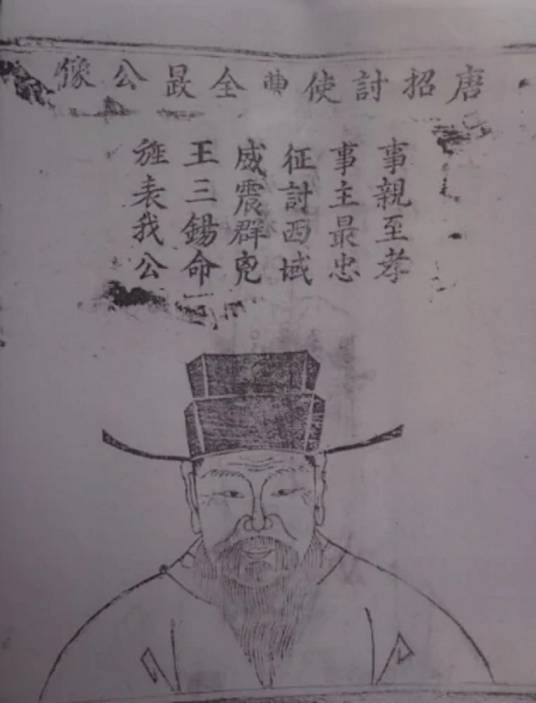 唐招討使全公像
事親至孝
事主最忠
征討西域
威震群兇
王三錫命
旌表我公